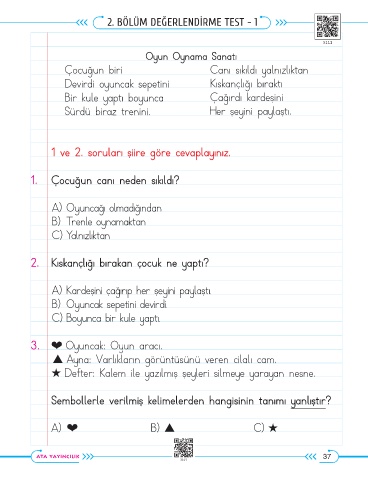 2. BÖLÜM DEĞERLENDİRME TEST - 1
Oyun Oynama Sanatı
Çocuğun biri
Devirdi oyuncak sepetini
Bir kule yaptı boyunca
Sürdü biraz trenini.
Canı sıkıldı yalnızlıktan
Kıskançlığı bıraktı
Çağırdı kardeşini
Her şeyini paylaştı.
1 ve 2. soruları şiire göre cevaplayınız.
1. Çocuğun canı neden sıkıldı?
A) Oyuncağı olmadığından
B) Trenle oynamaktan
C) Yalnızlıktan
2. Kıskançlığı bırakan çocuk ne yaptı?
A) Kardeşini çağırıp her şeyini paylaştı.
B) Oyuncak sepetini devirdi.
C) Boyunca bir kule yaptı.
3. ❤ Oyuncak: Oyun aracı.
▲ Ayna: Varlıkların görüntüsünü veren cilalı cam.
★ Defter: Kalem ile yazılmış şeyleri silmeye yarayan nesne.
Sembollerle verilmiş kelimelerden hangisinin tanımı yanlıştır?
A) ❤ B) ▲ C) ★
ATA YAYINCILIK
37